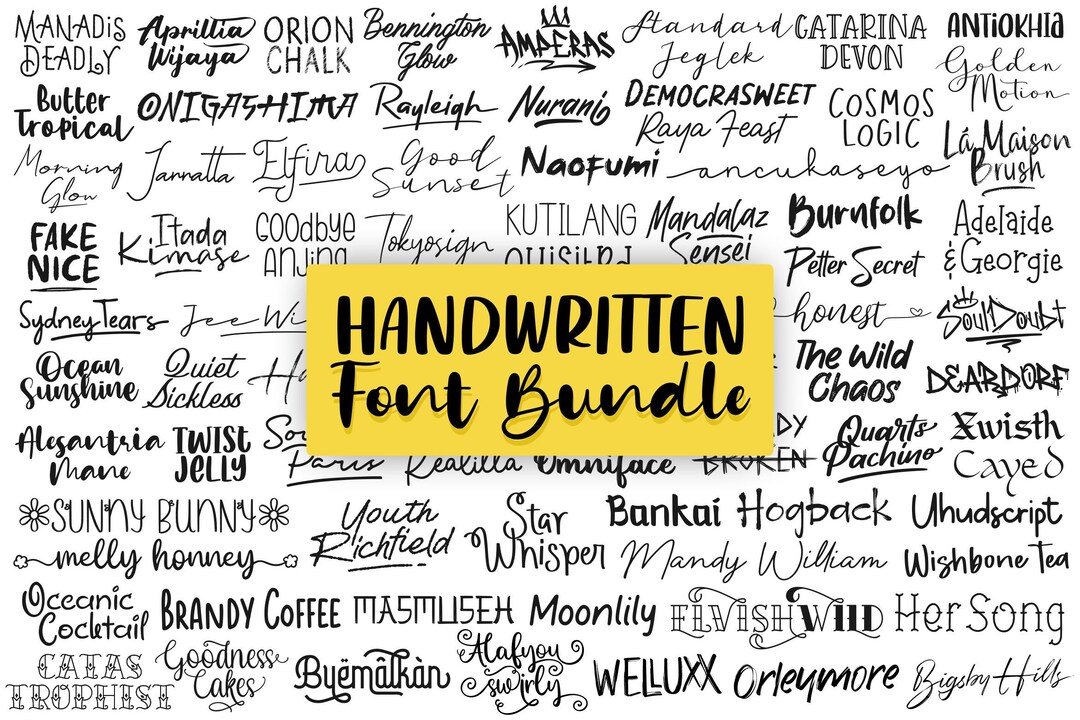 MANADIS
DEADLY
Aprillia
Wijaya
ORION
CHALK
Bennington
Glow
AMPERAS
Standard
Jeglek
CATARINA
DEVON
ANTiOKHiA
Golden
Motion
Butter
Tropical
ONIGASHIMA
Rayleigh
Nurani
DEMOCRASWEET
Raya Feast
COSMOS
LOGIC
Lá Maison
Brush
Morning
Glow
Jannatta
Elfira
Good
Sunset
Naofumi
ancukaseyo
FAKE
NICE
Itada
Kimase
GOODbye
ANJING
Tokyosign
KUTILANG
Mandalaz
Sensei
Burnfolk
Petter Secret
Adelaide
& Georgie
Sydney Tears
Jee Wi
HANDWRITTEN
Font Bundle
honest
Soul Doubt
Ocean
Sunshine
Quiet
Sickless
Ha
The Wild
Chaos
DEARDORF
Alesantria
Mane
TWIST
JELLY
Paris
Realilla
Omniface
BROKEN
Quarts
Pachino
Xwisth
Cayed
SUNNY BUNNY
melly honney
Youth
Richfield
Star
Whisper
Bankai
Hogback
Uhudscript
Mandy William
Wishbone Tea
Oceanic
Cocktail
BRANDY COFFEE
MASMUSEH
Moonlily
ELVISH WILD
Her Song
CATAS
TROPHIST
Goodness
Cakes
Byëmålkàn
Alafyou
swirly
WELLUXX
Orleymore
Bigsby Hills